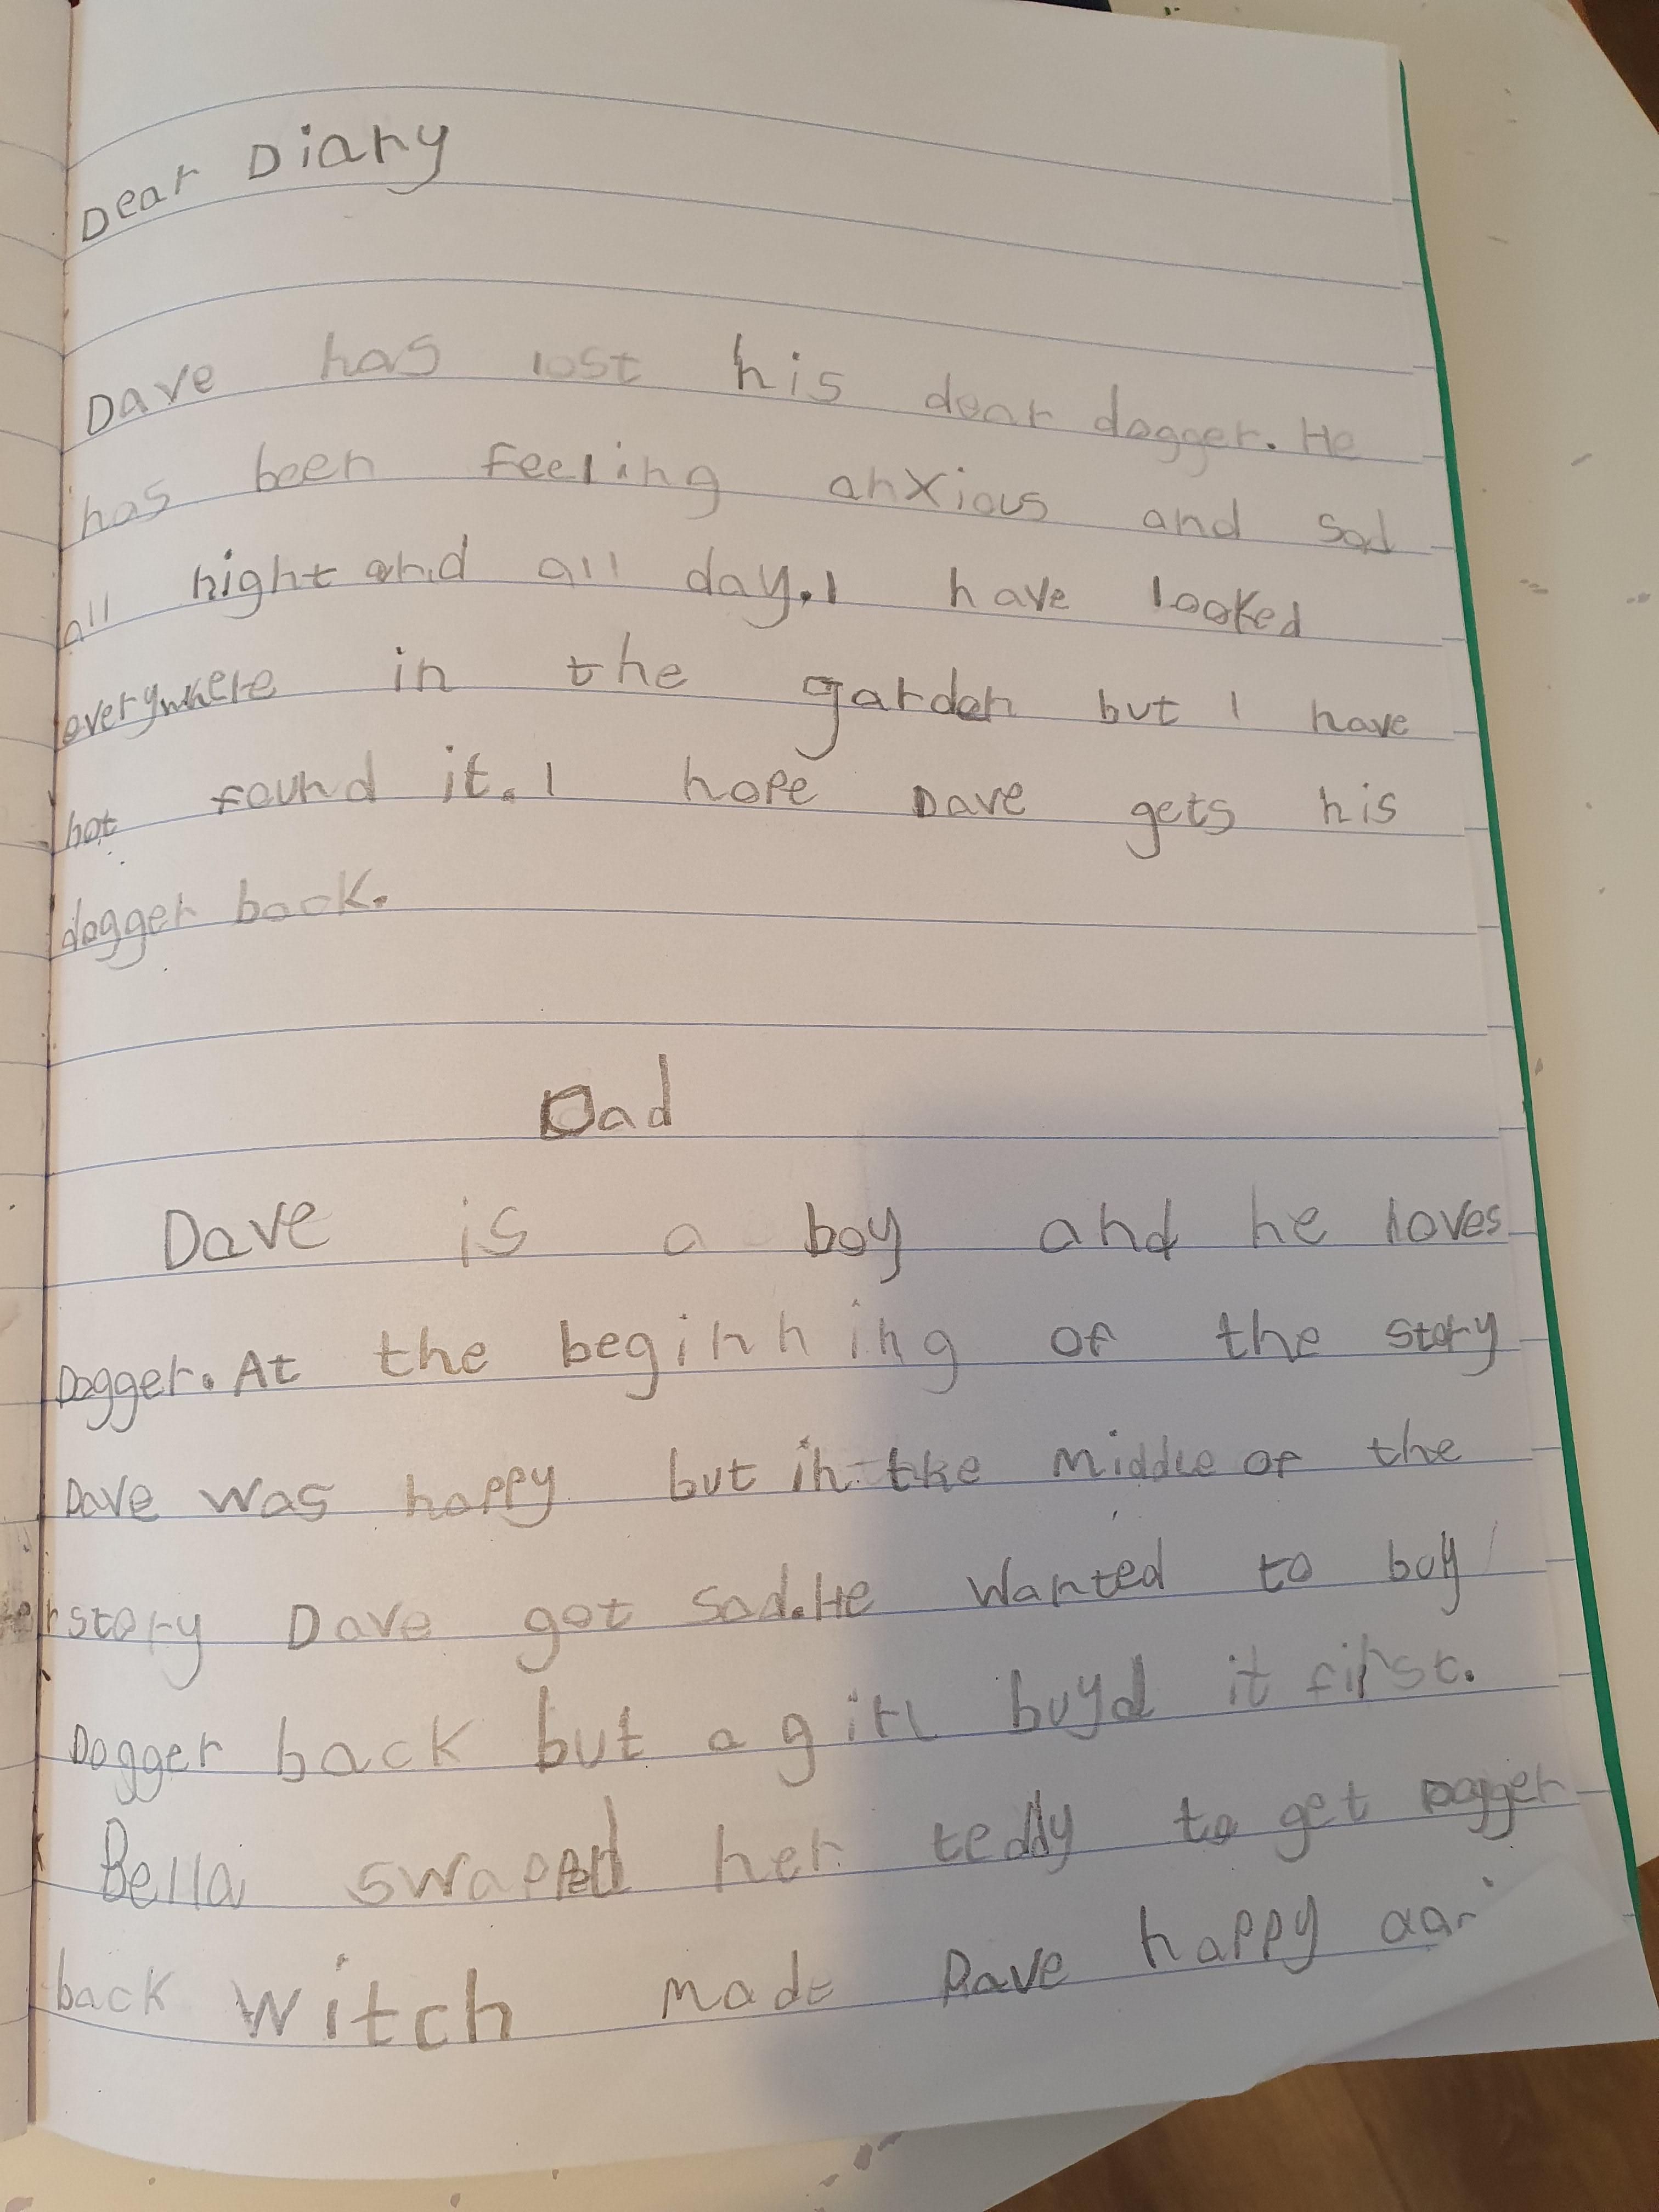 Dear Diary
Dave has lost his dear dogger. He
has been feeling anxious and sad
all night and all day. I have looked
everywhere in the garden but I have
not found it. I hope Dave gets his
dogger back.
Dad
Dave is a boy and he loves
Dogger. At the beginning of the story
Dave was happy but in the middle of the
story Dave got sad. He wanted to buy
Dogger back but a girl buyd it first.
Bella swapped her teddy to get Dogger
back witch made Dave happy